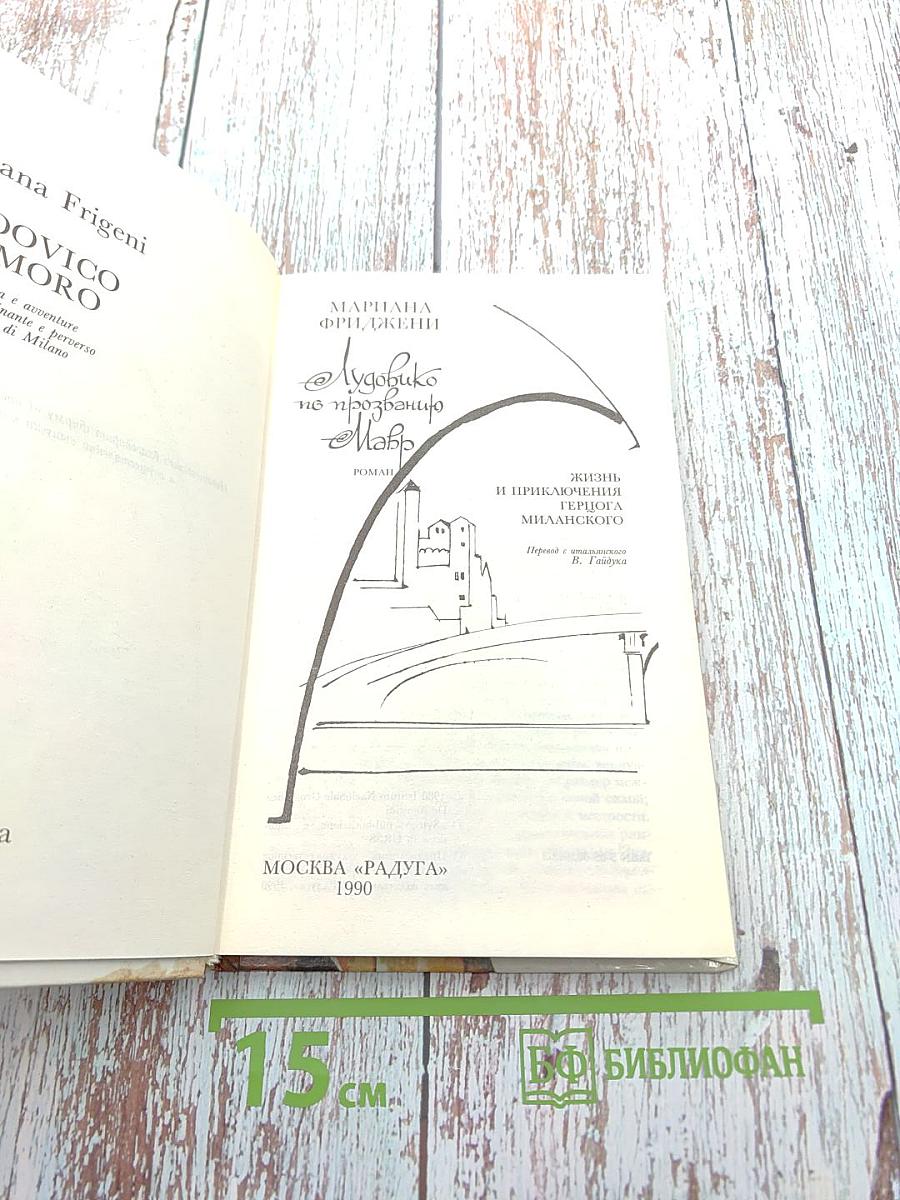 Frigeni
MORO
e avventure
e perverso
di Milano
МАРИАНА
ФРИДЖЕНИ
Лудовико
по прозванию
Мавр
РОМАН
ЖИЗНЬ
И ПРИКЛЮЧЕНИЯ
ГЕРЦОГА
МИЛАНСКОГО
Перевод с итальянского
В. Гайдука
МОСКВА «РАДУГА»
1990
15 см
БФ БИБЛИОФАН